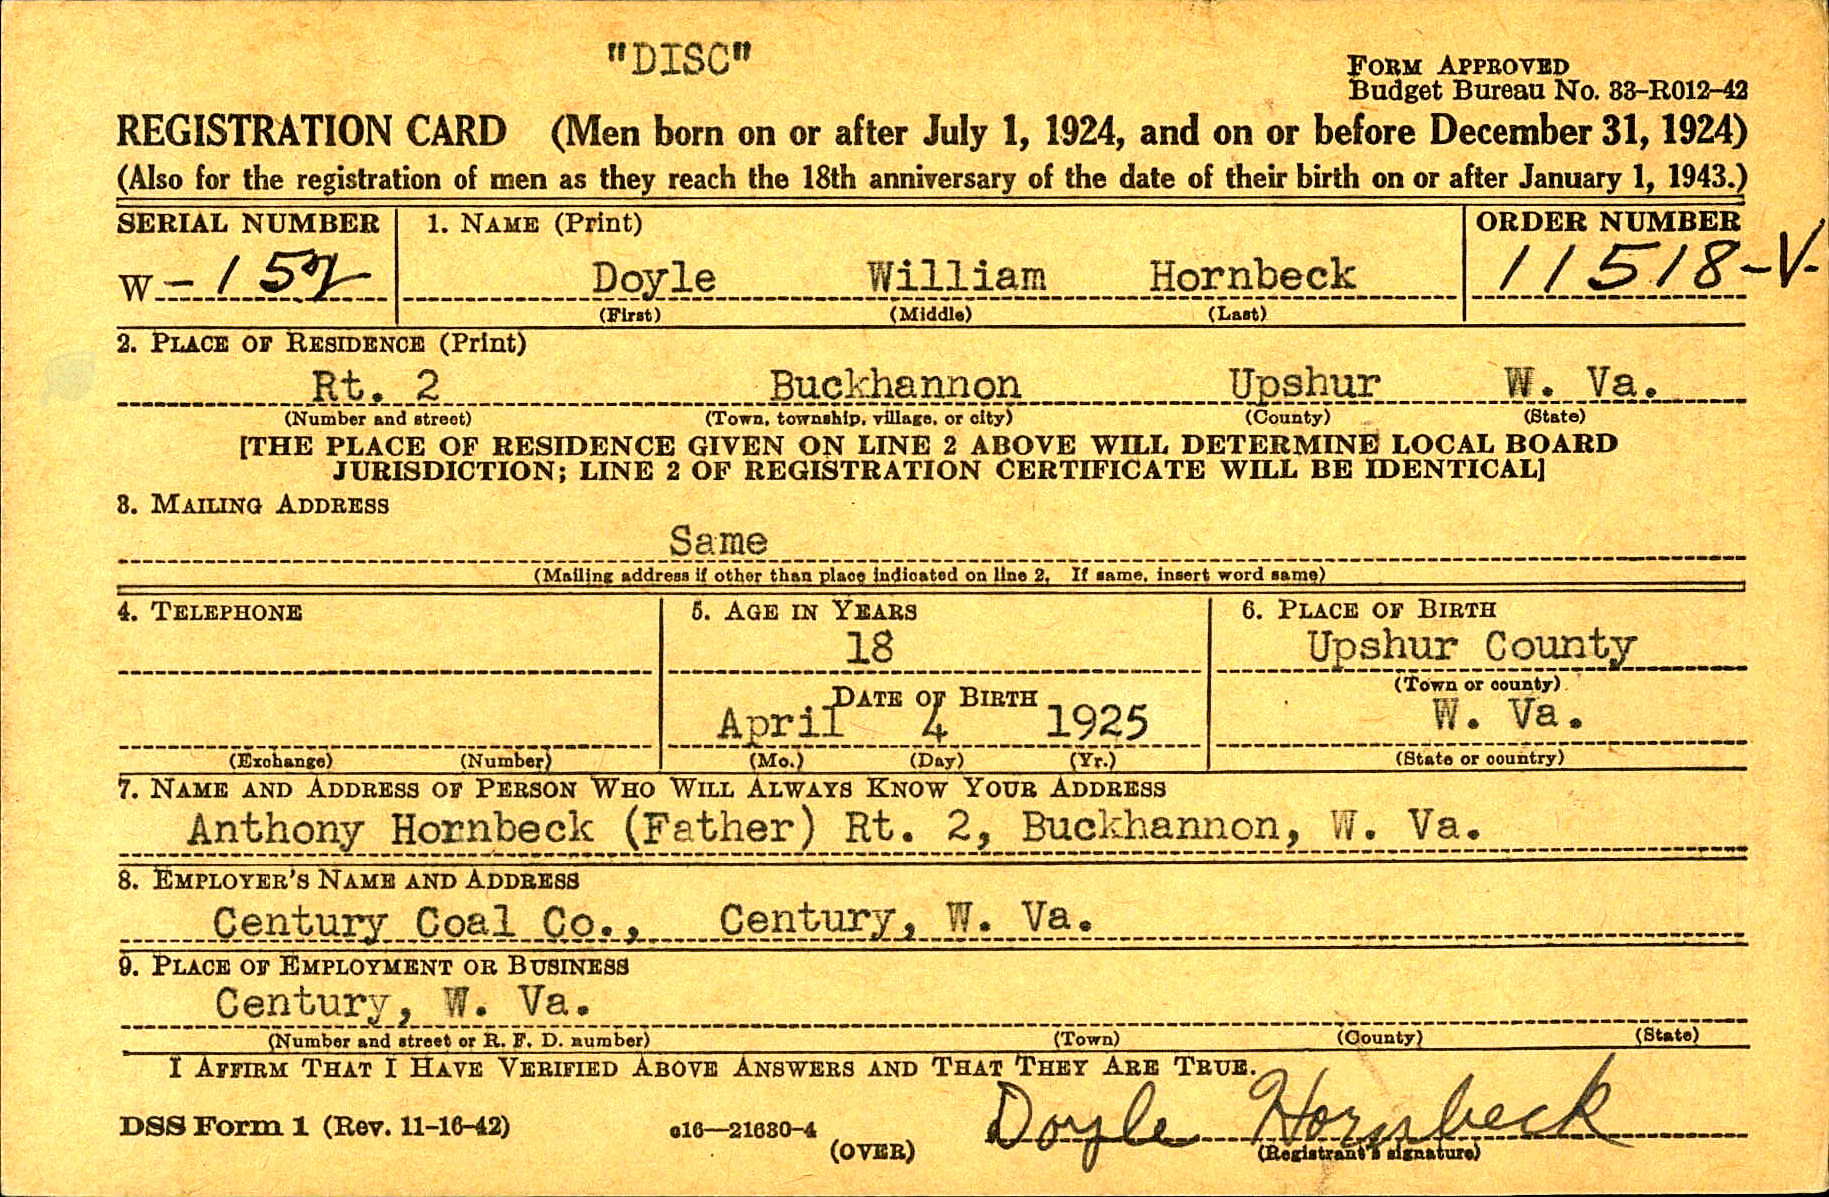 "DISC"
FORM APPROVED
Budget Bureau No. 33-R012-42
REGISTRATION CARD (Men born on or after July 1, 1924, and on or before December 31, 1924)
(Also for the registration of men as they reach the 18th anniversary of the date of their birth on or after January 1, 1943.)
SERIAL NUMBER 1. NAME (Print) ORDER NUMBER
W - 152 Doyle William Hornbeck 11518-V-
(First) (Middle) (Last)
2. PLACE OF RESIDENCE (Print)
Rt. 2 Buckhannon Upshur W. Va.
(Number and street) (Town, township, village, or city) (County) (State)
[THE PLACE OF RESIDENCE GIVEN ON LINE 2 ABOVE WILL DETERMINE LOCAL BOARD
JURISDICTION; LINE 2 OF REGISTRATION CERTIFICATE WILL BE IDENTICAL]
3. MAILING ADDRESS
Same
(Mailing address if other than place indicated on line 2. If same, insert word same)
4. TELEPHONE 5. AGE IN YEARS 6. PLACE OF BIRTH
18 Upshur County
DATE OF BIRTH (Town or county)
April 4 1925 W. Va.
(Exchange) (Number) (Mo.) (Day) (Yr.) (State or country)
7. NAME AND ADDRESS OF PERSON WHO WILL ALWAYS KNOW YOUR ADDRESS
Anthony Hornbeck (Father) Rt. 2, Buckhannon, W. Va.
8. EMPLOYER'S NAME AND ADDRESS
Century Coal Co., Century, W. Va.
9. PLACE OF EMPLOYMENT OR BUSINESS
Century, W. Va.
(Number and street or R. F. D. number) (Town) (County) (State)
I AFFIRM THAT I HAVE VERIFIED ABOVE ANSWERS AND THAT THEY ARE TRUE.
Doyle Hornbeck
DSS Form 1 (Rev. 11-16-42) c16—21630-4 (OVER) (Registrant's signature)